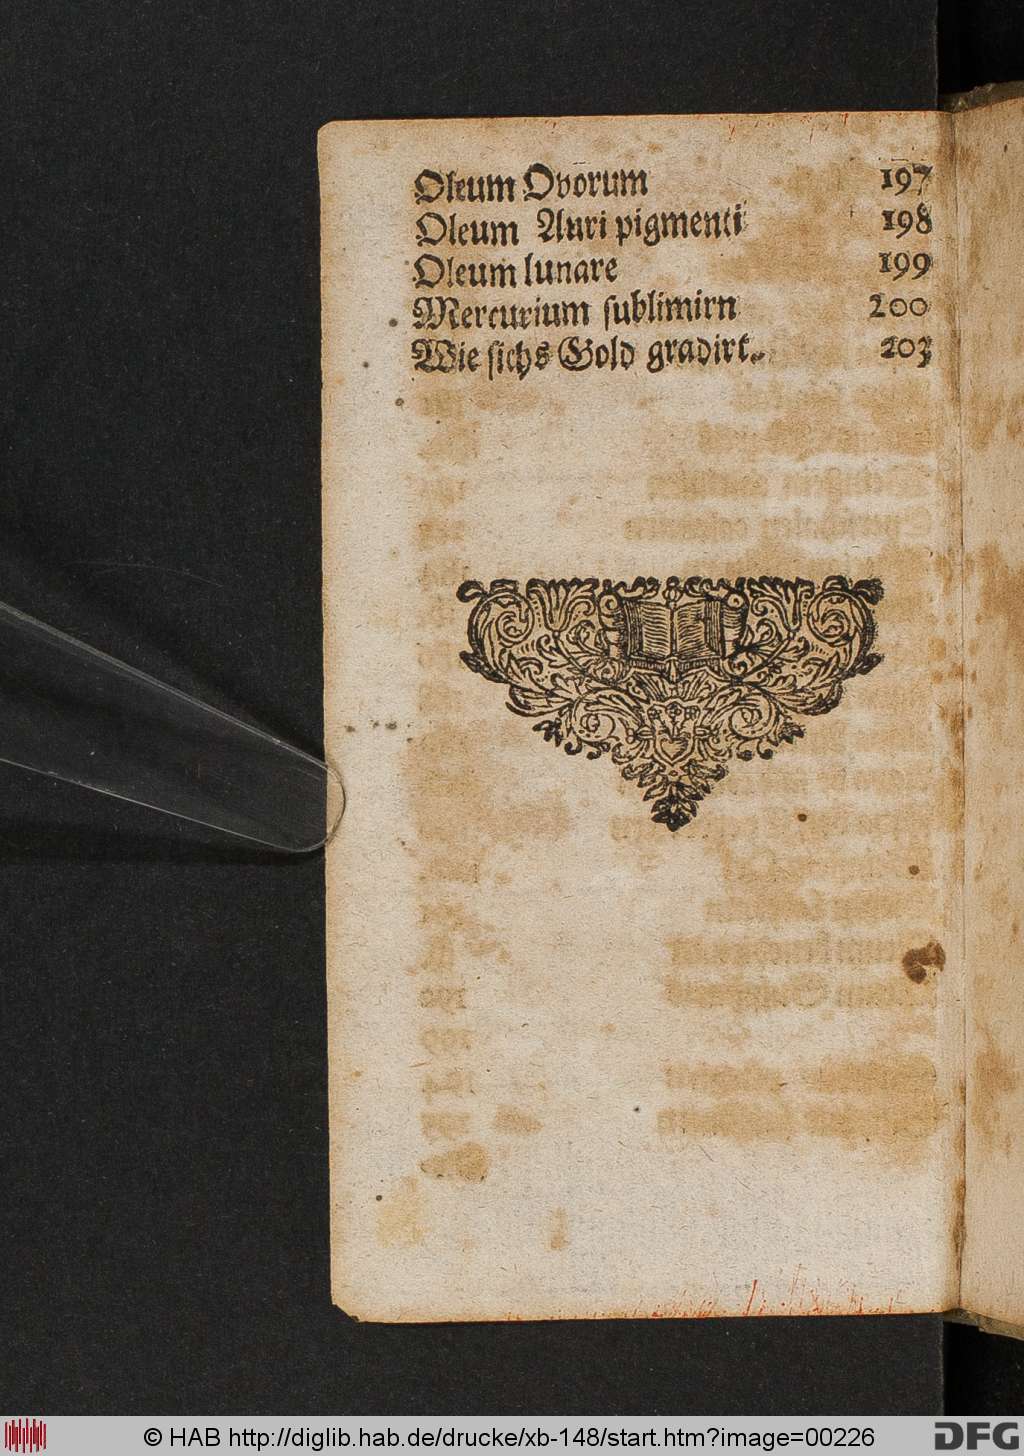 Oleum Ovorum 197
Oleum Auri pigmenti 198
Oleum lunare 199
Mercurium sublimirn 200
Wie sichs Gold gradirt. 203
© HAB http://diglib.hab.de/drucke/xb-148/start.htm?image=00226
DFG